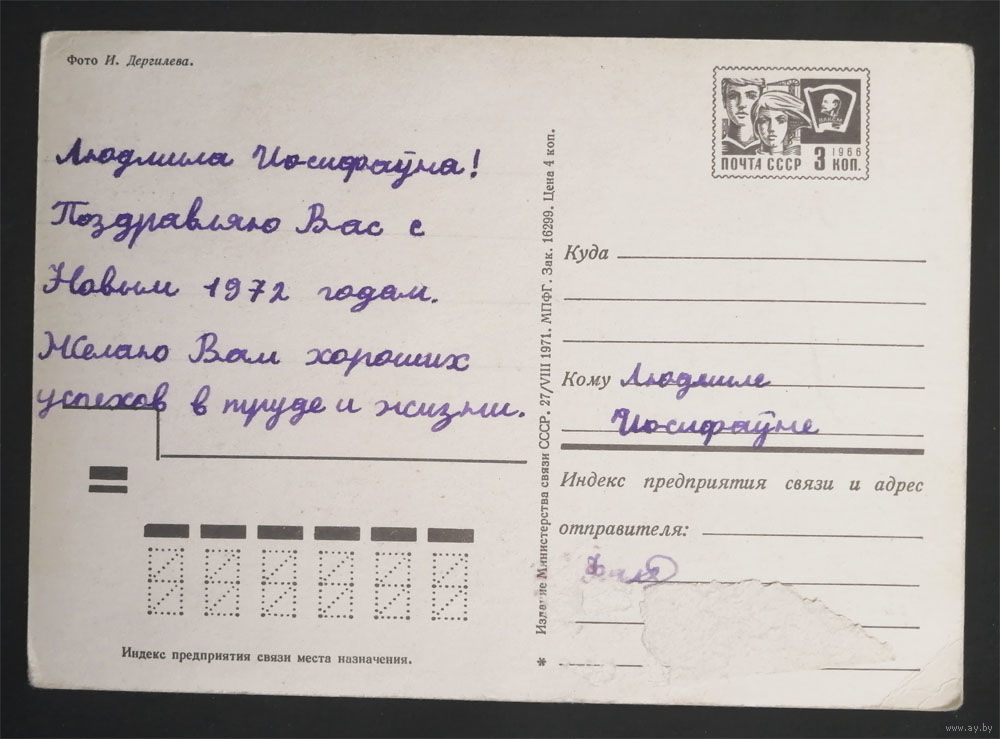 Фото И. Дергилева.
Людмила Иосифаўна!
Поздравляю Вас с
Новым 1972 годам.
Желаю Вам хороших
успехов в труде и жизни.
Индекс предприятия связи места назначения.
Издание Министерства связи СССР. 27/VIII 1971. МПФГ. Зак. 16299. Цена 4 коп.
ВЛКСМ
1966
ПОЧТА СССР 3 КОП.
Куда
Кому Людмиле
Иосифаўне
Индекс предприятия связи и адрес
отправителя:
*
www.ay.by